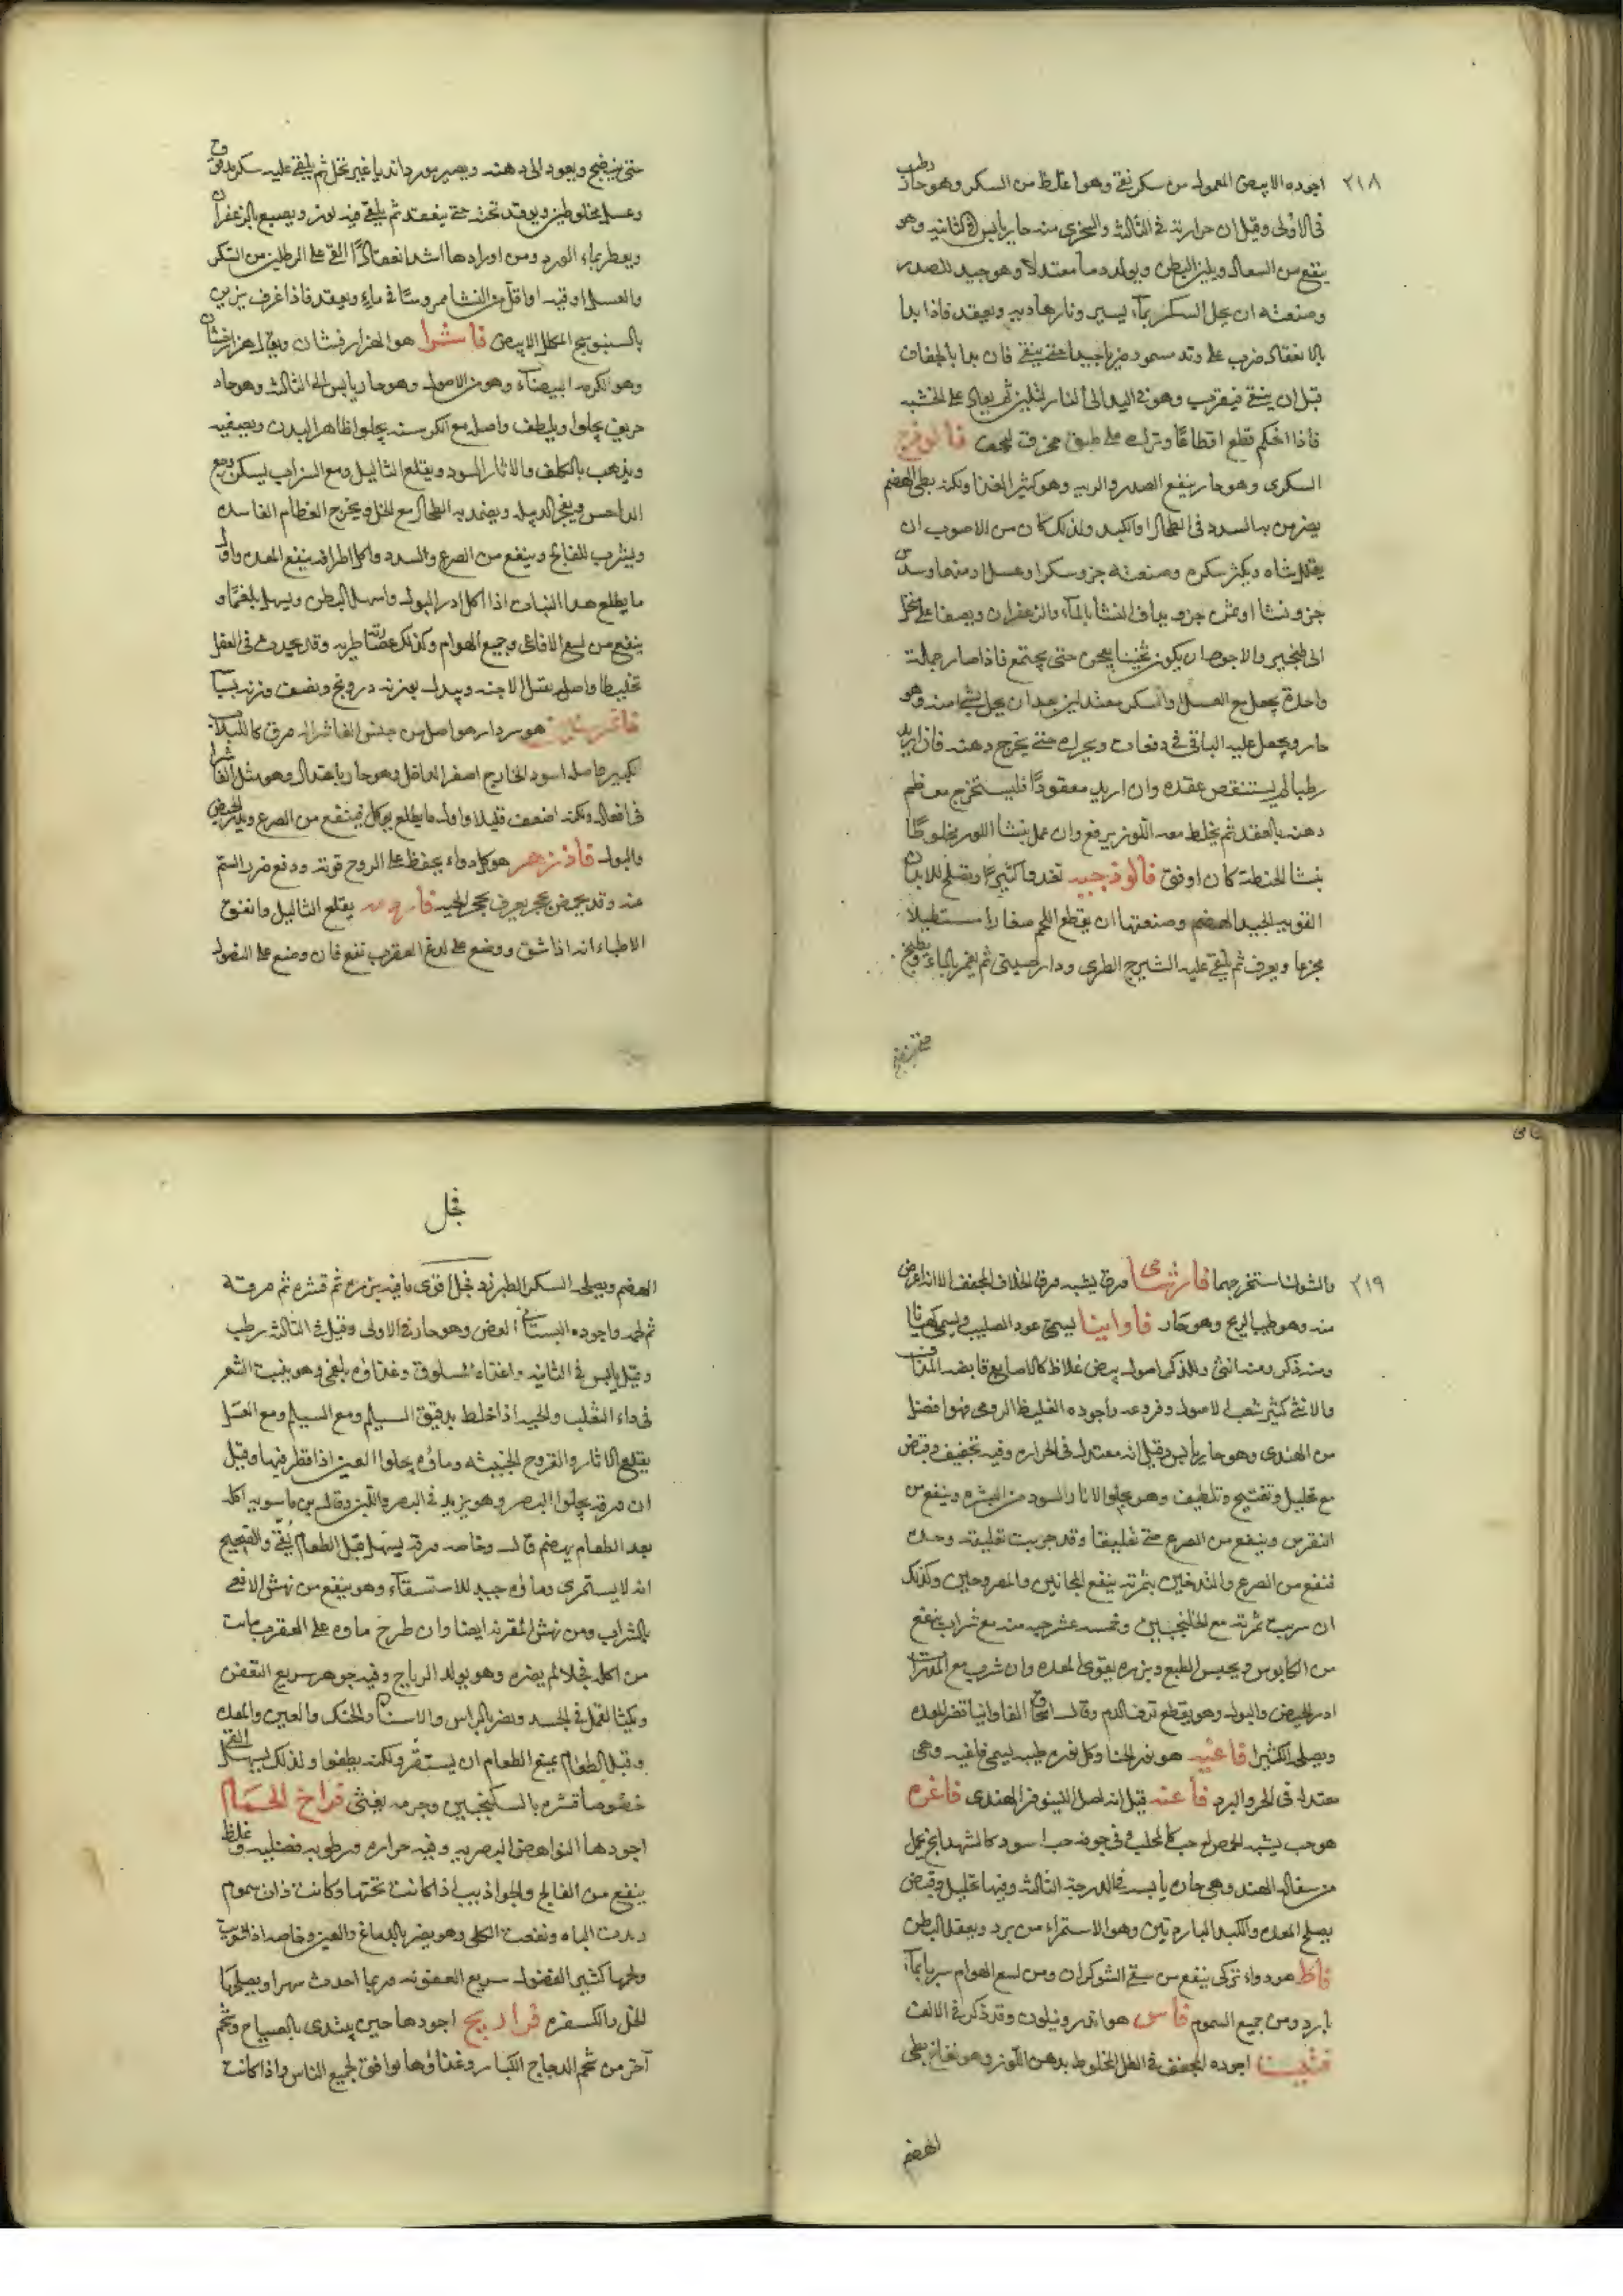 ٢١٨
اجوده الابيض المعمول من سكر نقي وهو اغلظ من السكر وهو حار رطب
في الاولى وقيل ان حرارته في الثالثة والسجزى منه حار يابس في الثانيه وهو
ينفع من السعال ويلين البطن ويولد دما معتدلا وهو جيد للصدر
وصنعته ان يحل السكر بماء يسير ونار هاديه ويعقد فاذا بدا
بالانعقاد ضرب على وتد مسمود ضربا جيدا حتى ينقى فان بدا بالجفاف
قبل ان ينقى فيقرب وهو في اليد الى النار ليلين ثم يعاد على الخشبه
فاذا احكم قطع اقطاعا وترك على طبق ليجف فالوذج
السكرى وهو حار ينفع الصدر والريه وهو كثير الغذا ولكنه بطى الهضم
يضر من به السدد في الطحال او الكبد ولذلك كان من الاصوب ان
يقلل نشاه ويكثر سكره وصنعته جزو سكر او عسل او منهما وسدس
جزو نشا او ثمن جزو يداف النشا بالماء والزعفران ويصفا على منخل
الى الطنجير والاجود ان يكون ثخينا يعجن حتى يجتمع فاذا صار جملة
واحدة يجعل مع العسل والسكر معتدلين بعد ان يحل بشيء منه وهو
حار ويجعل عليه الباقى في دفعات ويحرك حتى يخرج دهنه فان اريد
رطبا لم يستنقص عقده وان اريد معقودا فليستخرج معظم
دهنه بالعقد ثم يخلط معه اللوز ويرفع وان عمل بنشا اللوز مخلوطا
بنشا الحنطة كان اوفق فالوذجيه تغدوا كثيرا وتصلح للابدان
القويه الجيدة الهضم وصنعتها ان يقطع اللحم صغارا مستطيلا
مجزعا ويعرق ثم يلقى عليه الشيرج الطرى ودارصينى ثم يغمر بالماء ويطبخ
حتى ينضج
حتى ينضج ويعود الى دهنه ويصير موردا نديا غير نحل ثم يلقى عليه سكر مدقوق
وعسل مخلوطين ويوقد تحته حتى ينعقد ثم يلقى فيه لوز ويصبغ بالزعفران
ويعطر بماء الورد ومن اوراده اشد انعقادا القى على الرطلين من السكر
والعسل اوقيه او اقل من النشا ممروسا في ماء ويعقد فاذا غرف يزين
بالسنبوسج المحلل الابيض فاشرا هو الهزارفشان ويقال هزارفشان
وهو الكرمه البيضاء وهو من الاصول وهو حار يابس الى الثالثة وهو حاد
حريف يجلوا ويلطف واصله مع الكرسنه يجلوا ظاهر البدن ويصفيه
ويذهب بالكلف والاثار السود ويقلع الثاليل ومع الشراب يسكن وجع
الداحس ويفجر الدبيله ويضمد به الطحال مع الخل ويخرج العظام الفاسده
ويشرب للفالج وينفع من الصرع والسدد واكل اطرافه ينفع المعده واول
ما يطلع هذا النبات اذا اكل ادر البول واسهل البطن ويسهل بلغما و
ينفع من لسع الافاعى وجميع الهوام وكذلك عصارته طريه وقد يحدث في العقل
تخليطا واصله يقتل الاجنه وبدله بوزنه درونج ونصف وزنه بسباسه
فاشرستين هو سردار هو اصل من جنس الفاشرا له ورق كاللبلاب
الكبير واصله اسود الخارج اصفر الداخل وهو حار باعتدال وهو مثل الفاشرا
في افعاله ولكنه اضعف قليلا واول ما يطلع يوكل فينفع من الصرع ويدر الحيض
والبول فادزهر هو كل دواء يحفظ على الروح قوته ودفع ضرر السم
عنه وقد يخص بحجر يعرف بحجر الحيه فار يقلع الثاليل واتفق
الاطباء انه اذا شق ووضع على لدغ العقرب نفع فان وضع على النصول
٢١٩
والشوك استخرجهما فارشا ورق يشبه ورق الخلاف المجفف الا انه اعرض
منه وهو طيب الريح وهو حار فاوانيا يسمى عود الصليب ويسمى كهيانا
ومنه ذكر ومنه انثى وللذكر اصول بيض غلاظ كالاصابع قابضه المذاق
والانثى كثير شعب الاصول وفروعه واجوده الغليظ الرومى وهو افضل
من الهندى وهو حار يابس وقيل انه معتدل في الحراره وفيه تجفيف وقبض
مع تحليل وتفتيح وتلطيف وهو يجلوا الاثار السود من البشره وينفع من
النقرس وينفع من الصرع حتى تعليقا وقد جربت تعليقه وحده
فنفع من الصرع والتدخين بثمرته ينفع المجانين والمصروعين وكذلك
ان سربت ثمرته مع الجلنجبين وخمسه عشر حبه منه مع شراب ينفع
من الكابوس ويحبس الطبع وبزره يقوى المعده وان شرب مع
ادر الحيض والبول وهو يقطع نزف الدم وقال اسحاق الفاوانيا تضر المعده
ويصلحه الكثيرا فاغيه هو نور الحنا وكل نوره طيبه يسمى فاغيه وهى
معتدله في الحر والبرد فاعنه قيل انه اصل النينوفر الهندى فاغره
هو حب يشبه الحمص له حب كالمحلب وفي جوفه حب اسود كالشهدانج يحمل
من سفاله الهند وهى حاره يابسه في الدرجة الثالثة وفيها تحليل وقبض
يصلح المعده والكبد الباردتين وسوء الاستمراء من برد ويعقل البطن
فاط هو دواء تركى ينفع من سقى الشوكران ومن لسع الهوام سربا بماء
بارد ومن جميع السموم فاس هو اندرونيلون وقد ذكر في الالف
اجوده المجفف في الظل المخلوط بدهن اللوز وهو نفاخ بطى
الهضم
فجل
الهضم ويصلحه السكر الطبرزد فجل اقوى ما فيه بزره ثم قشره ثم ورقه
ثم لحمه واجوده البستانى الغض وهو حار في الاولى وقيل في الثالثة رطب
وقيل يابس في الثانيه واغذاه المسلوق وغذاؤه بلغمى وهو ينبت الشعر
في داء الثعلب والحيه اذا خلط بدقيق الشيلم ومع الشيلم ومع العسل
يقلع الاثار والقروح الخبيثه وماؤه يجلوا العين اذا قطر فيها وقيل
ان ورقه يجلوا البصر وهو يزيد في البصر واللبن وقال بن ماسويه اكله
بعد الطعام يهضم قال وخاصه ورقه يسهل قبل الطعام يقئ والصحيح
انه لا يستمرى وماؤه جيد للاستسقاء وهو ينفع من نهش الافعى
بالشراب ومن نهش المقرنه ايضا وان طرح ماوه على العقرب ماتت
من اكله فجلا لم يضره وهو يولد الرياح وفيه جوهر سريع التعفن
ويكثر القمل في الجسد ويضر بالراس والاسنان والحنك والعين والمعده
وقبل الطعام يمنع الطعام ان يستقر ولكنه يطفوا ولذلك يسهل القى
خصوصا قشره بالسكنجبين وجرمه يغثى فراخ الحمام
اجودها النواهض البصريه وفيه حراره ورطوبه فضليه وغلظ
ينفع من الفالج والجواذيب اذا كانت تحتها وكانت ذات سموم
زادت الباه ونفعت الكلى وهو يضر بالدماغ والعين وخاصه اذا شويت
ولحمها كثير الفضول سريع العفونه وربما احدث سهرا ويصلحها
الخل والكسفره فراريج اجودها حين يبتدى بالصياح وشحم
آخر من شحم الدجاج الكبار وغذاؤها يوافق لجميع الناس واذا كانت